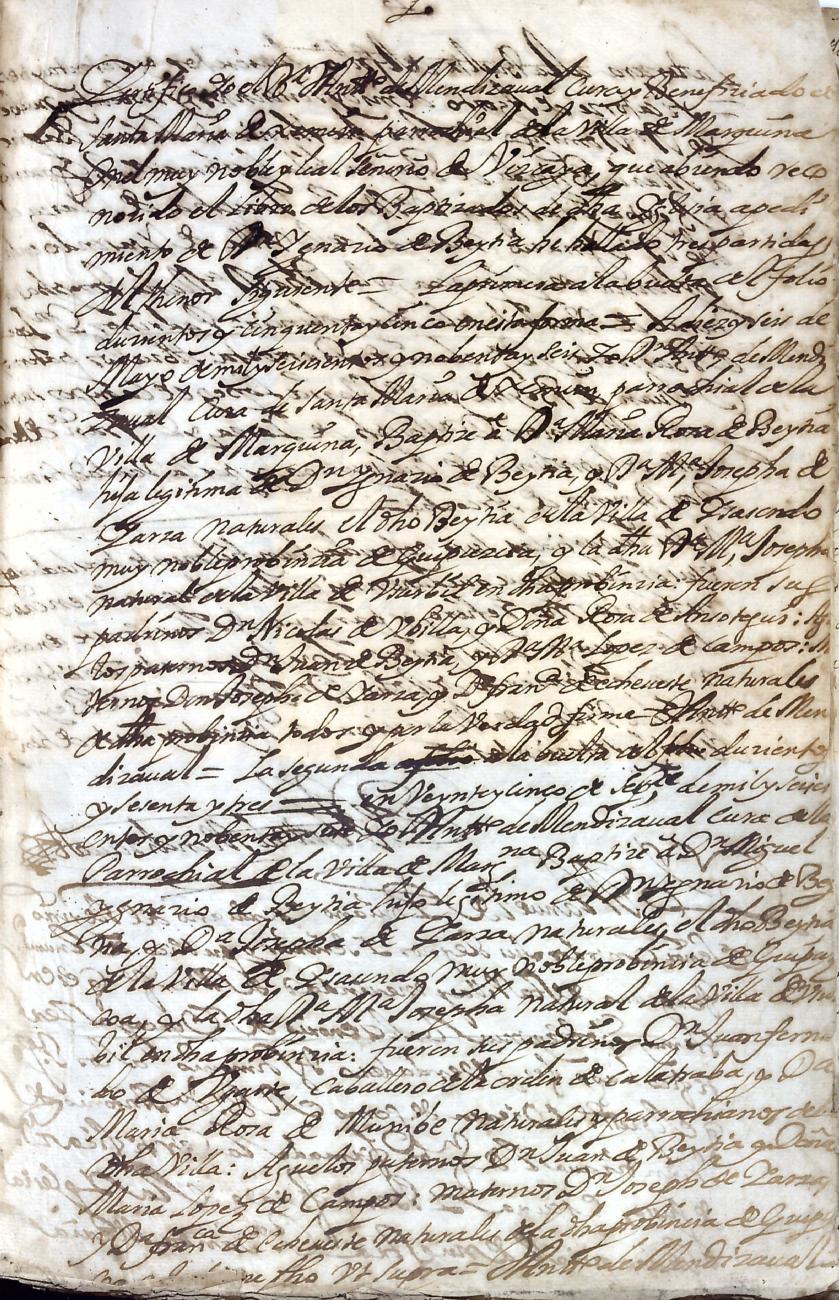 Certifico Yo el B.r Ant.o de Mendizaval Cura y Beneficiado de
Santa Maria de Xemein parrochial de la Villa de Marquina
en el muy noble y leal Señorio de Vizcaya, que abiendo reco
nocido el Libro de los Baptizados de dha a pedi
miento de D.n Ygnacio de Beytia he hallado tres partidas
del thenor siguiente = La primera a la buelta del folio
ducientos y cinquenta y cinco en esta forma = A diez y seis de
Mayo de mil y seiscientos y nobenta y seis Yo D.n Ant.o de Mendi
zaval Cura de Santa Maria de Xemein parrochial de la
Villa de Marquina, Baptize a D.a Maria Rosa de Beytia
hija legitima de D.n Ygnacio de Beytia, y D.a M.a Josepha de
Zarza naturales el dho Beytia de la Villa de Ysasondo
muy noble probinçia de Guipuzcoa, y la dha D.a M.a Josepha
natural de la Villa de Vrbil en dha probinzia: fueron sus
padrinos D.n Nicolas de Vbilla, y Doña Rosa de Ansotegui: Ague
los paternos D.n Juan de Beytia, y D.a M.a Lopez de Campos: ma
ternos Don Joseph de Zarza y D.a fran.ca de Echeveste naturales
de dha probinçia todos y por la Verdad firme = Ant.o de Men
dizaval = La segunda a la buelta del folio ducientos
y sesenta y tres = en Veynte y cinco de Sep.re de mil y seisci
entos y nobenta y siete Yo Ant.o de Mendizaval Cura de la
Parrochial de la Villa de Marq.na Baptize a D.n Miguel
Ygnacio de Beytia hijo legitimo de D.n Ygnacio de Bey
tia, y D.a Josepha de Zarza naturales, el dho Beytia
de la Villa de Ysasondo muy noble probinçia de Guipuz
coa, y la dha D.a M.a Josepha natural de la Villa de Vr
bil en dha probinzia: fueron sus padrinos D.n Juan ferna
do de Ygarte, Caballero de la orden de Calatraba, y D.a
Maria Rosa de Munibe naturales y parrochianos de la
dha Villa: Aguelos paternos D.n Juan de Beytia y Doña
Maria Lopez de Campos: maternos D.n Joseph de Zarza,
y D.a fran.ca de Echeveste naturales de la dha probincia de Guipuz
fho Vt supra = Ant.o de Mendizaval